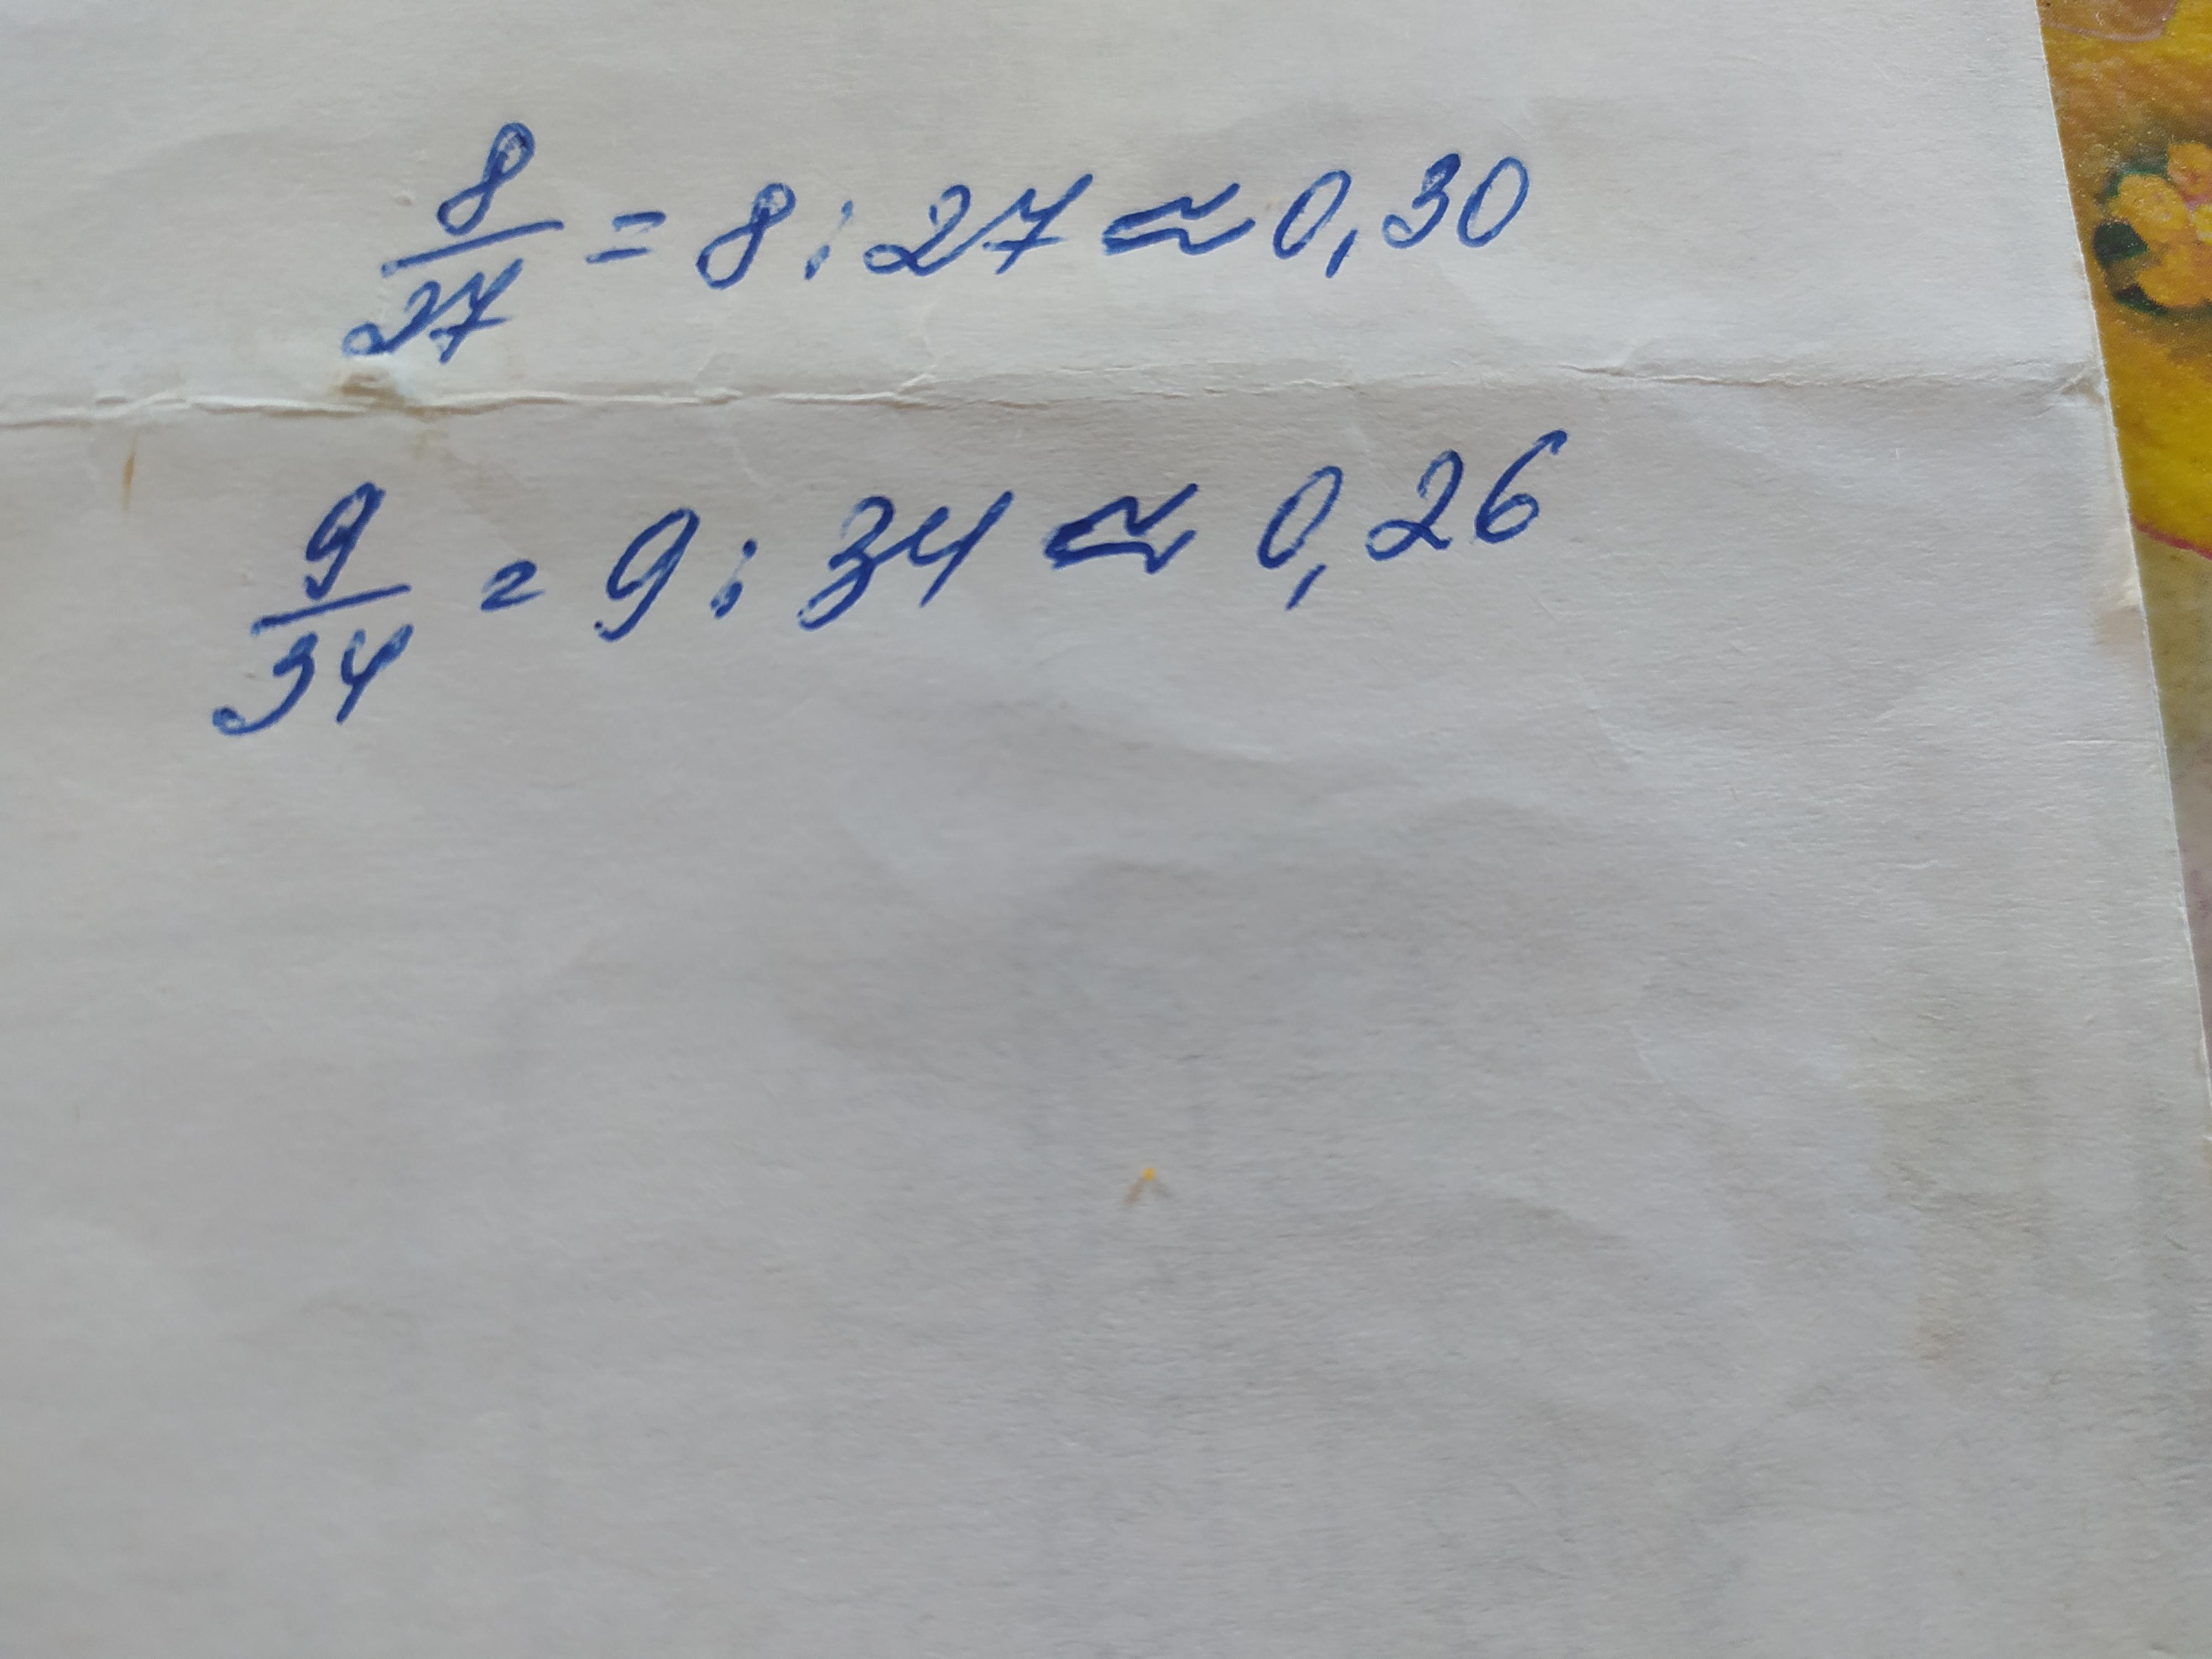 8/27 = 8 : 27 ≈ 0,30
9/34 = 9 : 34 ≈ 0,26